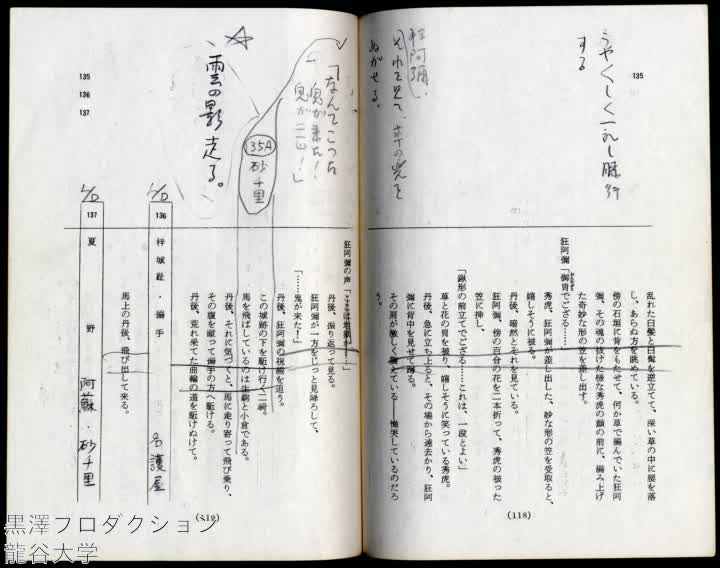 135
うやくしく一礼し膝行
する
狂阿彌、
それを見て、草の兜を
ぬがせる。
乱れた白髪と白髯を逆立てて、深い草の中に腰を落
し、あらぬ方を眺めている。
傍の石垣に背をもたせて、何か草で編んでいた狂阿
彌、その魂の抜けた様な秀虎の顔の前に、編み上げ
た奇妙な形の笠を差し出す。
狂阿彌「御冑でござる……
秀虎、狂阿彌が差し出した、妙な形の笠を受取ると、
嬉しそうに被る。
丹後、暗然とそれを見ている。
狂阿彌、傍の百合の花を二本折って、秀虎の被った
笠に挿し、
「鍬形の前立てでござる……これは、一段とよい」
草と花の冑を被り、嬉しそうに笑っている秀虎。
丹後、急に立ち上ると、その場から遠去かり、狂阿
彌に背中を見せて踞る。
その肩が激しく震えている――慟哭しているのだろ
う。
(118)
「なんてこった
鬼が来た！
鬼が二匹！」
35A
砂千里
雲の影走る。
135
136
137
狂阿彌の声「ここは地獄か……」
丹後、振り返って見る。
狂阿彌が一方をじっと見降ろして、
「……鬼が来た！」
丹後、狂阿彌の視線を追う。
この城跡の下を駈け行く二騎。
馬を飛ばしているのは生駒と小倉である。
丹後、それに気づくと、馬に走り寄って飛び乗り、
その腹を蹴って搦手の方へ駈ける。
丹後、荒れ果てた曲輪の道を駈けぬけて。
L/D
136
梓城趾・搦手
名護屋
馬上の丹後、飛び出して来る。
L/D
137
夏野
阿蘇・砂千里
(119)
黒澤プロダクション
龍谷大学